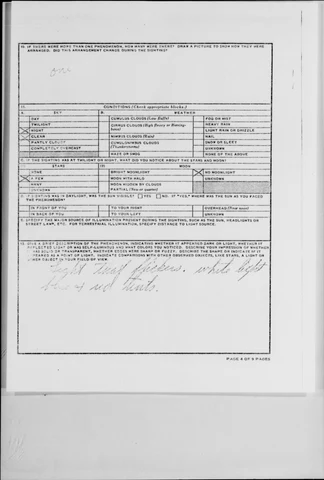 10. IF THERE WERE MORE THAN ONE PHENOMENON, HOW MANY WERE THERE? DRAW A PICTURE TO SHOW HOW THEY WERE
ARRANGED. DID THIS ARRANGEMENT CHANGE DURING THE SIGHTING?
one
CONDITIONS (Check appropriate blocks.)
SKY WEATHER
DAY CUMULUS CLOUDS (Low fluffy) FOG OR MIST
TWILIGHT CIRRUS CLOUDS HEAVY RAIN
NIGHT LIGHT RAIN OR DRIZZLE
CLEAR NIMBUS CLOUDS (Rain) HAIL
PARTLY CLOUDY CUMULONIMBUS CLOUDS SNOW OR SLEET
COMPLETELY OVERCAST (Thunderstorms) UNKNOWN
HAZE OR SMOG NONE OF THE ABOVE
IF THE SIGHTING WAS AT TWILIGHT OR NIGHT, WHAT DID YOU NOTICE ABOUT THE STARS AND MOON?
STARS MOON
NONE BRIGHT MOONLIGHT NO MOONLIGHT
A FEW MOON WITH HALO UNKNOWN
MANY MOON HIDDEN BY CLOUDS
UNKNOWN PARTIAL
IF SIGHTING WAS IN DAYLIGHT, WAS THE SUN VISIBLE? YES NO. IF "YES" WHERE WAS THE SUN AS YOU FACED
THE PHENOMENON?
IN FRONT OF YOU TO YOUR RIGHT OVERHEAD
IN BACK OF YOU TO YOUR LEFT UNKNOWN
SPECIFY THE MAJOR SOURCE OF ILLUMINATION PRESENT DURING THE SIGHTING, SUCH AS THE SUN, HEADLIGHTS OR
STREET LAMP, ETC. FOR TERRESTRIAL ILLUMINATION, SPECIFY DISTANCE TO LIGHT SOURCE.
GIVE A BRIEF DESCRIPTION OF THE PHENOMENON, INDICATING WHETHER IT APPEARED DARK OR LIGHT, WHETHER IT
REFLECTED LIGHT OR WAS SELF-LUMINOUS AND WHAT COLORS YOU NOTICED. DESCRIBE YOUR IMPRESSION OF WHETHER
IT WAS SOLID OR TRANSPARENT, WHETHER EDGES WERE SHARP OR FUZZY. DESCRIBE THE SHAPE OR INDICATE IF IT
APPEARED AS A POINT OF LIGHT. INDICATE COMPARISONS WITH OTHER OBSERVED OBJECTS, LIKE STARS, A LIGHT OR
OTHER OBJECT IN YOUR FIELD OF VIEW.
light that flickers. white light
blue & red tints.
PAGE 4 OF 8 PAGES